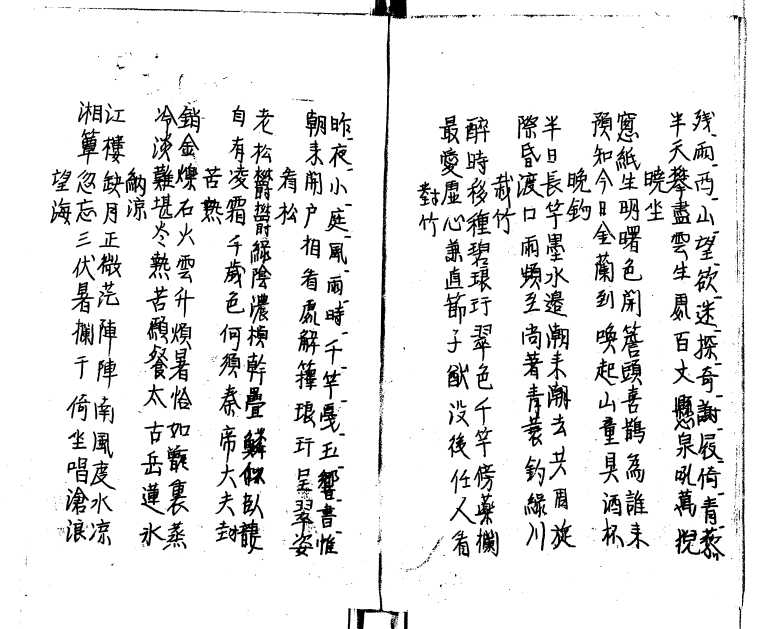 残雨西山望欲迷探奇謝屐倚青藜
半天攀盡雲生處百丈懸泉吼萬猊
曉坐
窓紙生明曙色開簷頭喜鵲為誰来
預知今日金蘭到喚起山童具酒杯
晚釣
半日長竿墨水邉潮来潮去共周旋
際昏渡口雨頻至尚著青蓑釣緑川
栽竹
醉時移種碧琅玕翠色千竿傍藥欄
最愛虛心兼直節子猷没後任人看
對竹
昨夜小庭風雨時千竿戛玉響書惟
朝来開户相看處解籜琅玕呈翠姿
看松
老松欝欝緑陰濃槙幹疊鱗似臥龍
自有凌霜千歲色何須秦帝大夫封
苦熱
銷金爍石火雲升煩暑恰如甑裏蒸
冷淡難堪冬熱苦願餐太古岳蓮氷
納凉
江樓缺月正微茫陣陣南風度水凉
湘簟忽忘三伏暑欄干倚坐唱滄浪
望海